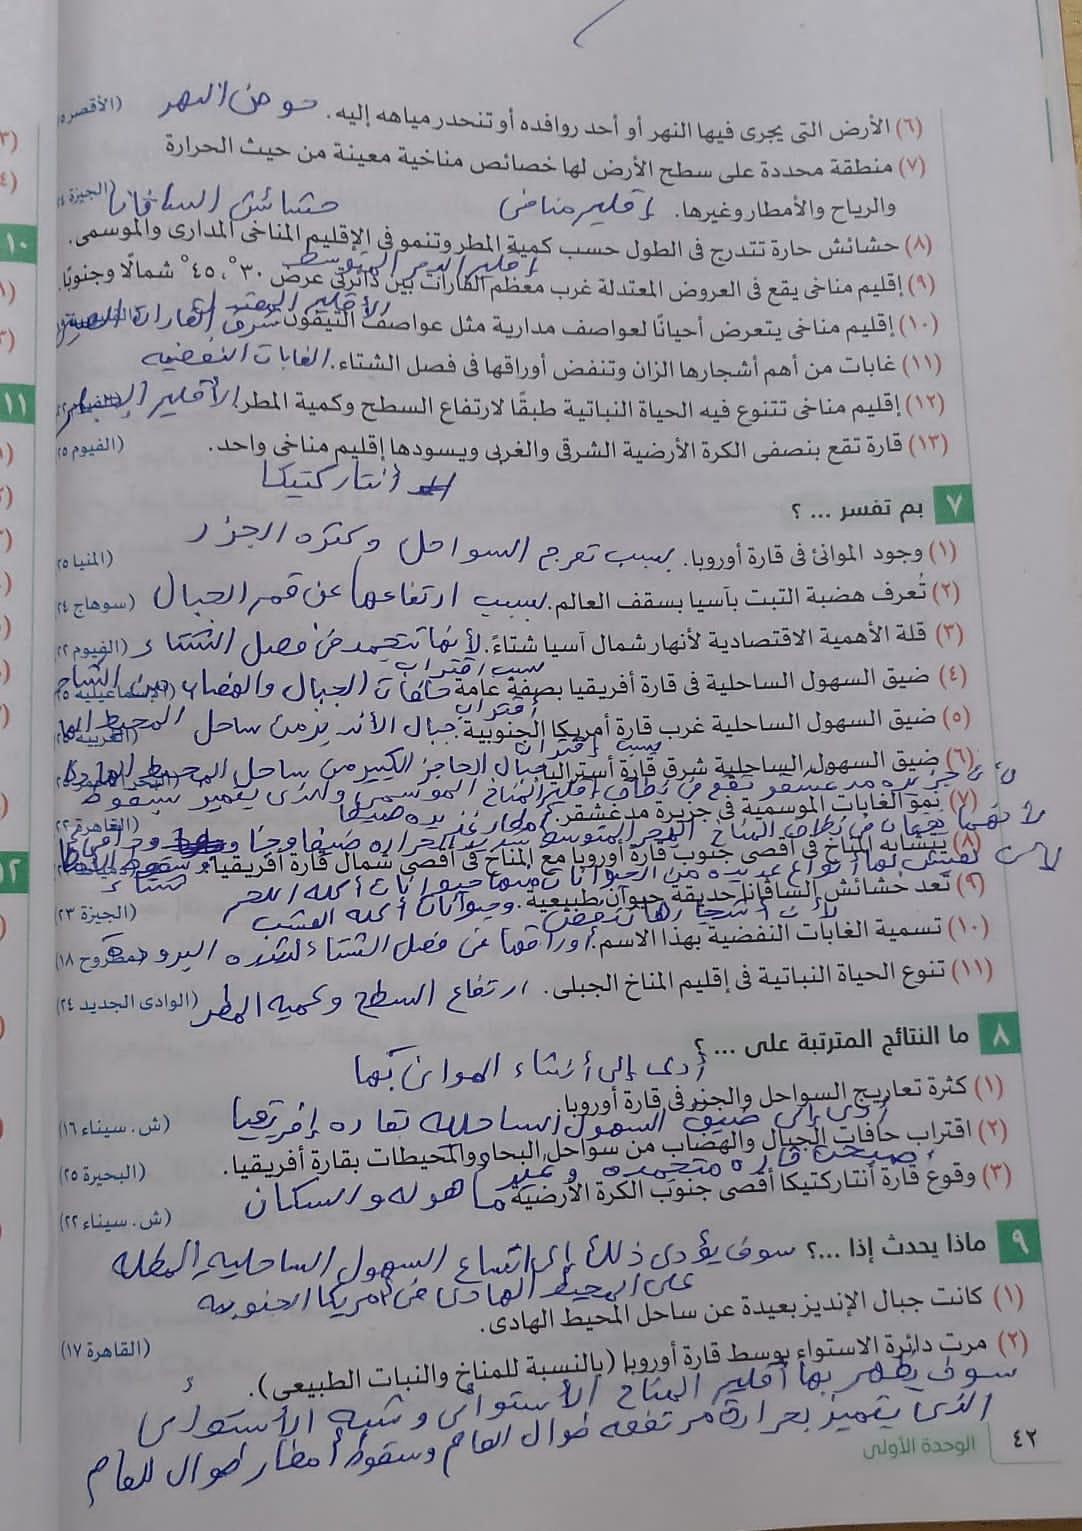 (٦) الأرض التى يجرى فيها النهر أو أحد روافده أو تنحدر مياهه إليه. حوض النهر (الأقصر
(٧) منطقة محددة على سطح الأرض لها خصائص مناخية معينة من حيث الحرارة
والرياح والأمطار وغيرها. إقليم مناخى (الجيزة
حشائش السافانا
(٨) حشائش حارة تتدرج فى الطول حسب كمية المطر وتنمو فى الإقليم المناخى المدارى والموسمى.
إقليم البحر المتوسط
(٩) إقليم مناخى يقع فى العروض المعتدلة غرب معظم القارات بين دائرتى عرض ٣٠°، ٤٥° شمالًا وجنوبًا.
الأقليم المعتدل شرق القارات
(١٠) إقليم مناخى يتعرض أحيانًا لعواصف مدارية مثل عواصف التيفون
(١١) غابات من أهم أشجارها الزان وتنفض أوراقها فى فصل الشتاء. الغابات النفضيه
(١٢) إقليم مناخى تتنوع فيه الحياة النباتية طبقًا لارتفاع السطح وكمية المطر. الأقليم
(١٣) قارة تقع بنصفى الكرة الأرضية الشرقى والغربى ويسودها إقليم مناخى واحد. (الفيوم ٢٥)
أنتاركتيكا
٧ بم تفسر ... ؟
(١) وجود الموانئ فى قارة أوروبا. بسبب تعرج السواحل وكثره الجزر (المنيا ٢٥)
(٢) تُعرف هضبة التبت بآسيا بسقف العالم. بسبب ارتفاعها عن قمم الجبال (سوهاج ٢٤)
(٣) قلة الأهمية الاقتصادية لأنهار شمال آسيا شتاءً. لأنها تتجمد فى فصل الشتاء (الفيوم ٢٢)
بسبب اقتراب
(٤) ضيق السهول الساحلية فى قارة أفريقيا بصفة عامة حافات الجبال والهضاب من (الإسماعيلية ٢٥)
اقتراب
(٥) ضيق السهول الساحلية غرب قارة أمريكا الجنوبية. جبال الأنديز من ساحل المحيط
بسبب إقتراب
(٦) ضيق السهول الساحلية شرق قارة أستراليا. جبال الحاجز الكبير من ساحل المحيط الهادى
جزيره مدغشقر تقع فى نطاق إقليم المناخ الموسمى والذى يتميز بسقوط
(٧) نمو الغابات الموسمية فى جزيرة مدغشقر. أمطار غزيره صيفا (القاهرة ٢٢)
لأنهما يقعان فى نطاق المناخ البحر المتوسط
(٨) يتشابه المناخ فى أقصى جنوب قارة أوروبا مع المناخ فى أقصى شمال قارة أفريقيا.
تعيش بها أنواع عديده من الحيوانات منها حيوانات أكله اللحم
(٩) تُعد حشائش السافانا حديقة حيوان طبيعية. وحيوانات أكله العشب (الجيزة ٢٣)
لأن أشجارها تنفض
(١٠) تسمية الغابات النفضية بهذا الاسم. أوراقها فى فصل الشتاء لشده البروده (مطروح ١٨)
(١١) تنوع الحياة النباتية فى إقليم المناخ الجبلى. ارتفاع السطح وكميه المطر (الوادى الجديد ٢٤)
٨ ما النتائج المترتبة على ... ؟
أدى إلى أنشاء الموانى بها
(١) كثرة تعاريج السواحل والجزر فى قارة أوروبا.
أدى إلى ضيق السهول الساحليه بقاره إفريقيا (ش. سيناء ١٦)
(٢) اقتراب حافات الجبال والهضاب من سواحل البحار والمحيطات بقارة أفريقيا. (البحيرة ٢٥)
أصبحت قاره متجمده وغير
(٣) وقوع قارة أنتاركتيكا أقصى جنوب الكرة الأرضية ماهوله بالسكان (ش. سيناء ٢٢)
٩ ماذا يحدث إذا ...؟ سوف يؤدى ذلك إلى اتساع السهول الساحليه المطله
على المحيط الهادى فى أمريكا الجنوبيه
(١) كانت جبال الإنديز بعيدة عن ساحل المحيط الهادى.
(٢) مرت دائرة الاستواء بوسط قارة أوروبا (بالنسبة للمناخ والنبات الطبيعى). (القاهرة ١٧)
سوف يظهر بها أقليم المناخ الأستوائى وشبه الأستوائى
الذى يتميز بحرارة مرتفعه طوال العام وسقوط أمطار طوال العام
٤٢ الوحدة الأولى
١٠
١١
١٢